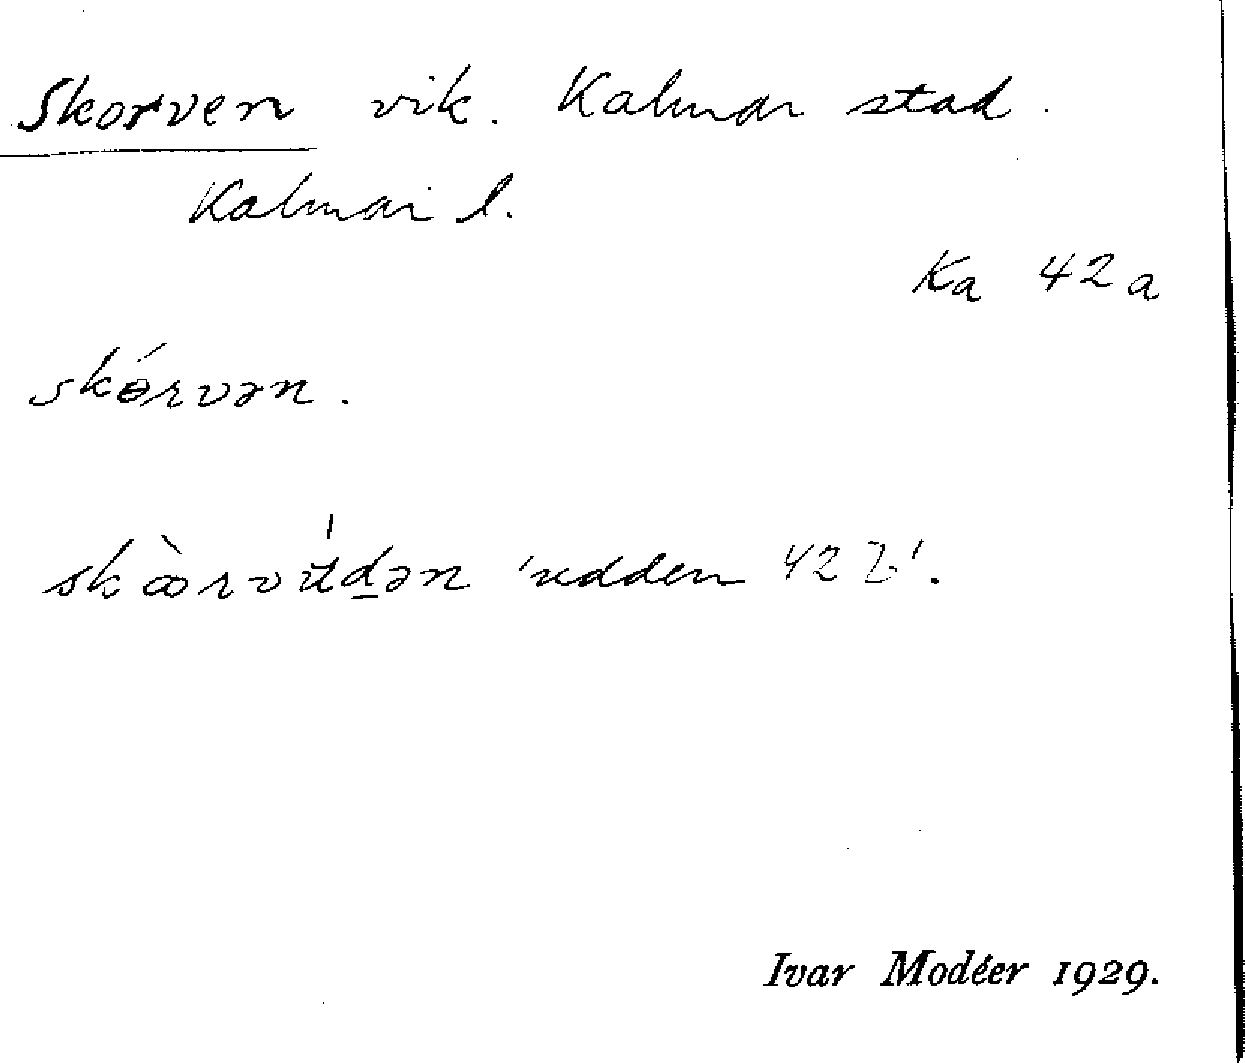 Skorven vik. Kalmar stad.
Kalmar l.
Ka 42a
skɵ́rvən.
'udden 42 b'.
Ivar Modéer 1929.